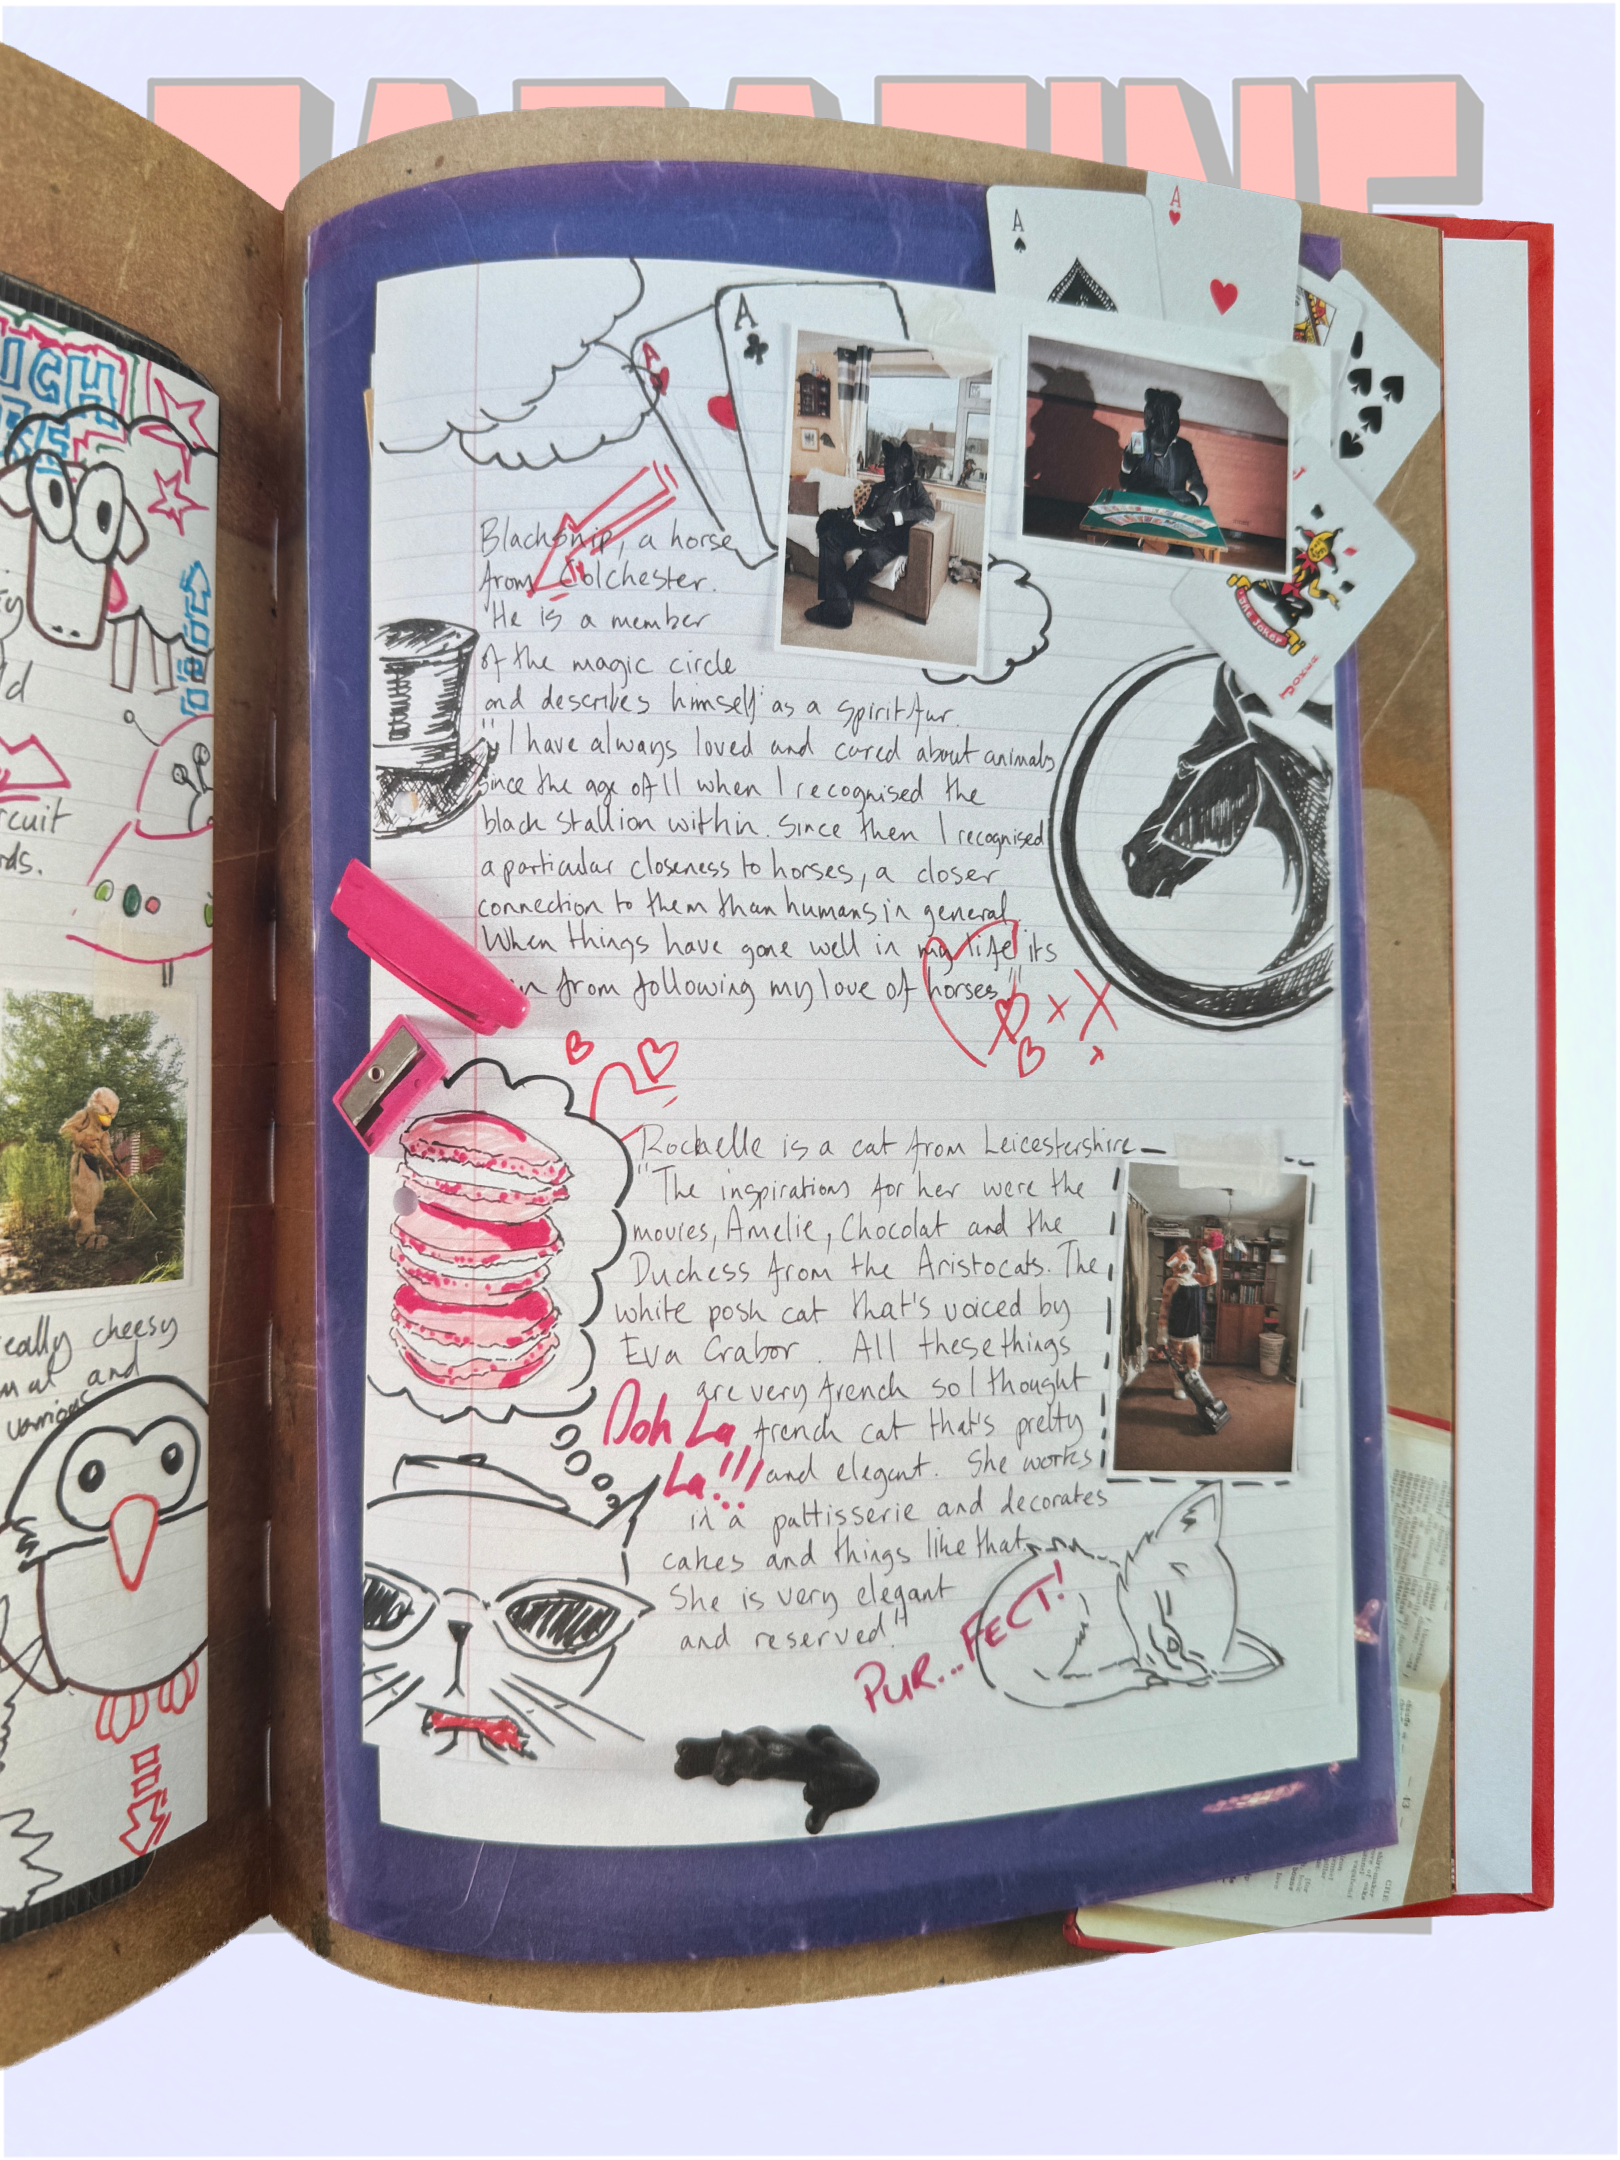 Blacksnip, a horse
from Colchester.
He is a member
of the magic circle
and describes himself as a spirit fur.
"I have always loved and cared about animals
since the age of 11 when I recognised the
black stallion within. Since then I recognised
a particular closeness to horses, a closer
connection to them than humans in general.
When things have gone well in my life its
from following my love of horses"
Rochelle is a cat from Leicestershire
"The inspirations for her were the
movies, Amelie, Chocolat and the
Duchess from the Aristocats. The
white posh cat that's voiced by
Eva Grabor. All these things
are very french so I thought
french cat that's pretty
and elegant. She works
in a pattisserie and decorates
cakes and things like that.
She is very elegant
and reserved."
Ooh La
La!!!
PUR...FECT!
A
A
A
A
JOKER
really cheesy
and
various